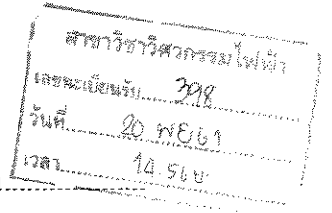 สาขาวิชาวิศวกรรมไฟฟ้า
เลขทะเบียนรับ 398
วันที่ 20 พย 61
เวลา 14.51 น.